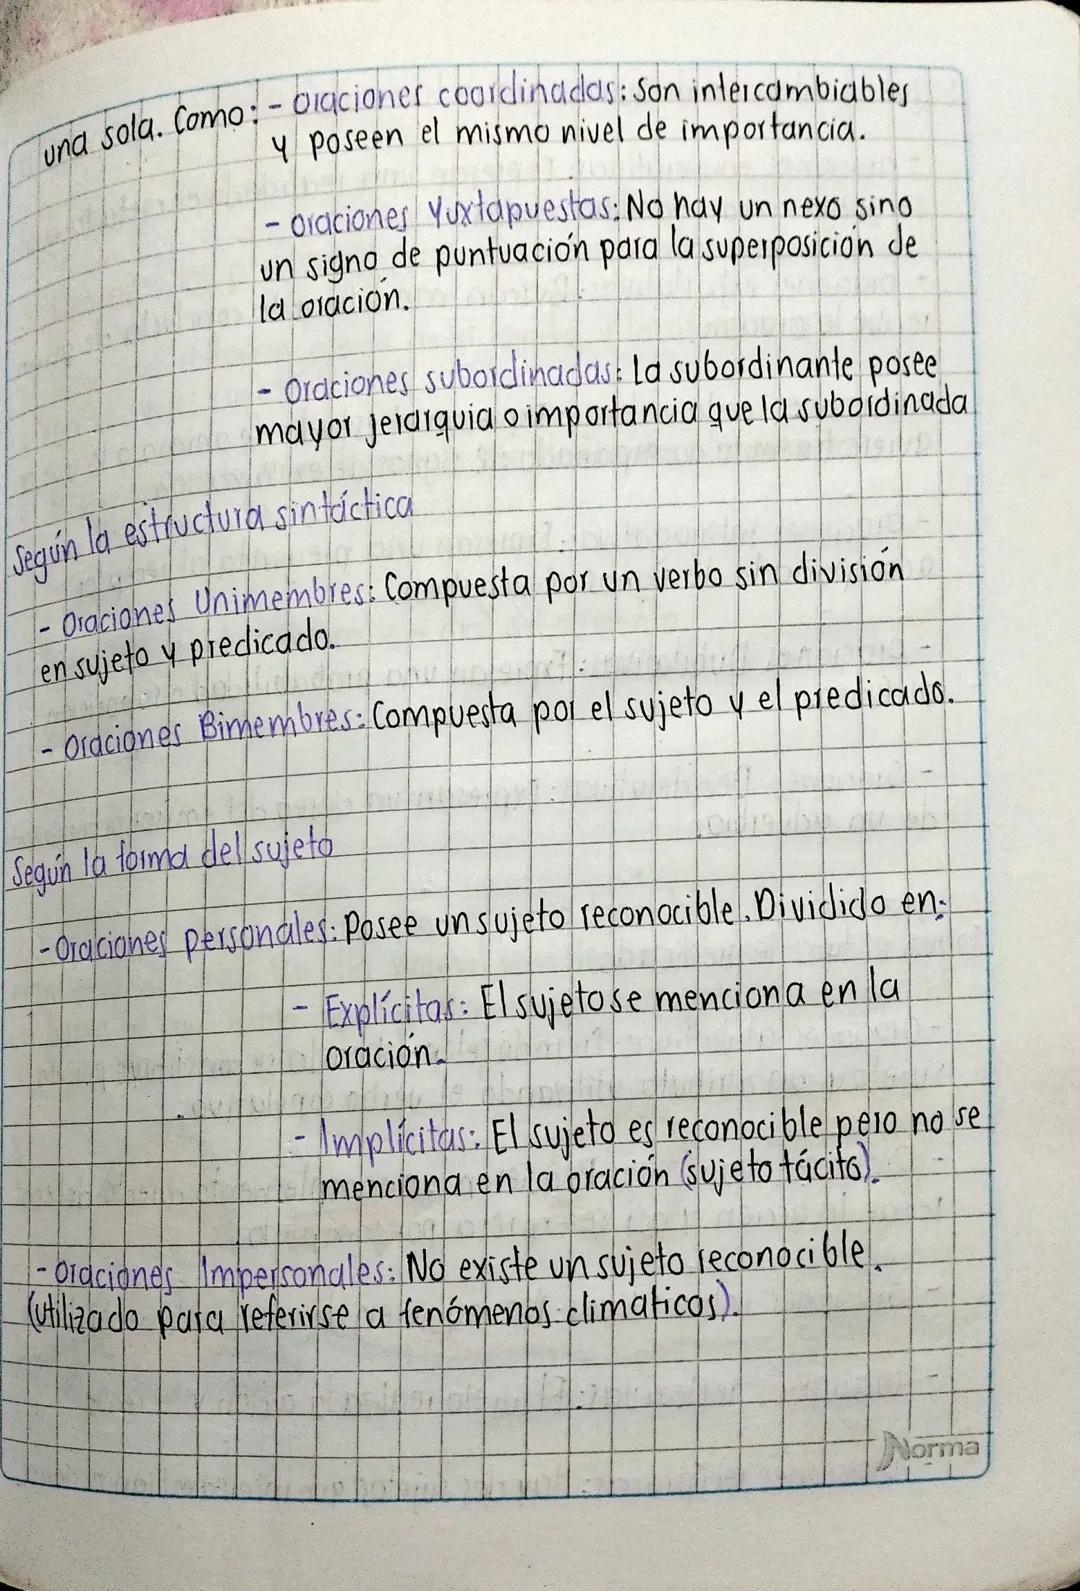 una sola. Como: - oraciones coordinadas: Son intercambiables
y poseen el mismo nivel de importancia.
- oraciones Yuxtapuestas: No hay un nexo sino
un signo de puntuación para la superposición de
la oración.
- Oraciones subordinadas: La subordinante posee
mayor jerarquia o importancia que la subordinada
Según la estructura sintáctica
- Oraciones Unimembres: Compuesta por un verbo sin división
en sujeto y predicado.
- Oraciones Bimembres: Compuesta por el sujeto y el predicado.
Según la forma del sujeto
- Oraciones personales: Posee un sujeto reconocible. Dividido en:
- Explícitas: El sujeto se menciona en la
oración.
- Implícitas: El sujeto es reconocible pero no se
menciona en la oración (sujeto tácito).
- oraciones Impersonales: No existe un sujeto reconocible.
(utilizado para referirse a fenómenos climaticos).
Norma